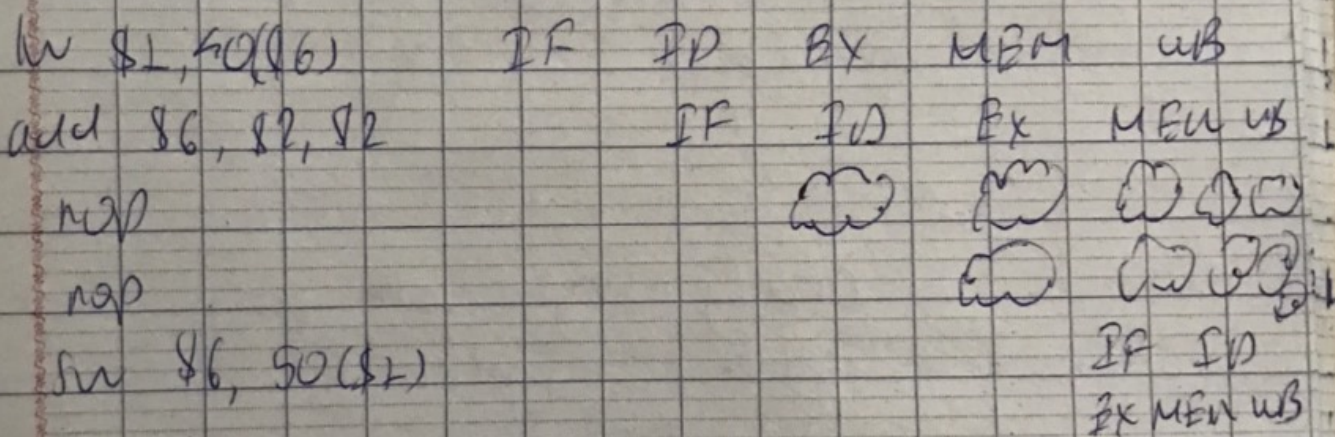 lw $1, 40($6) IF ID EX MEM WB
add $6, $2, $2 IF ID EX MEM WB
nop
nop
sw $6, 50($1) IF ID
EX MEM WB